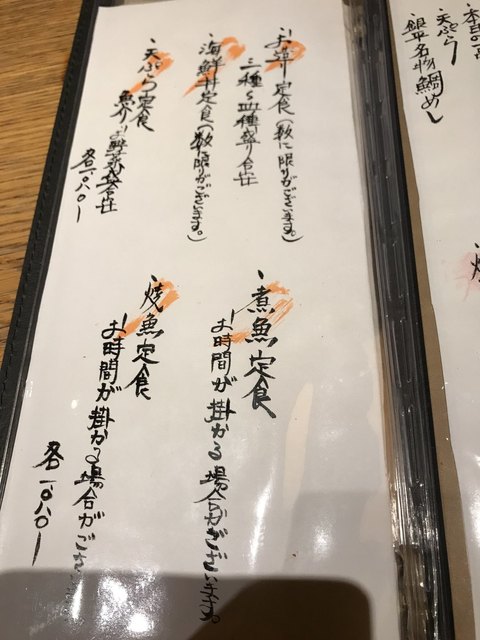 本日の
天ぷら
銀平名物鯛めし
、お造り定食(数に限りがございます。)
三種～四種盛り合せ
、海鮮丼定食(数に限りがございます。)
、天ぷら定食
魚介と野菜盛合せ
各一〇八〇ー
、煮魚定食
お時間が掛かる場合がございます。
、焼魚定食
お時間が掛かる場合がござい
各一〇八〇ー